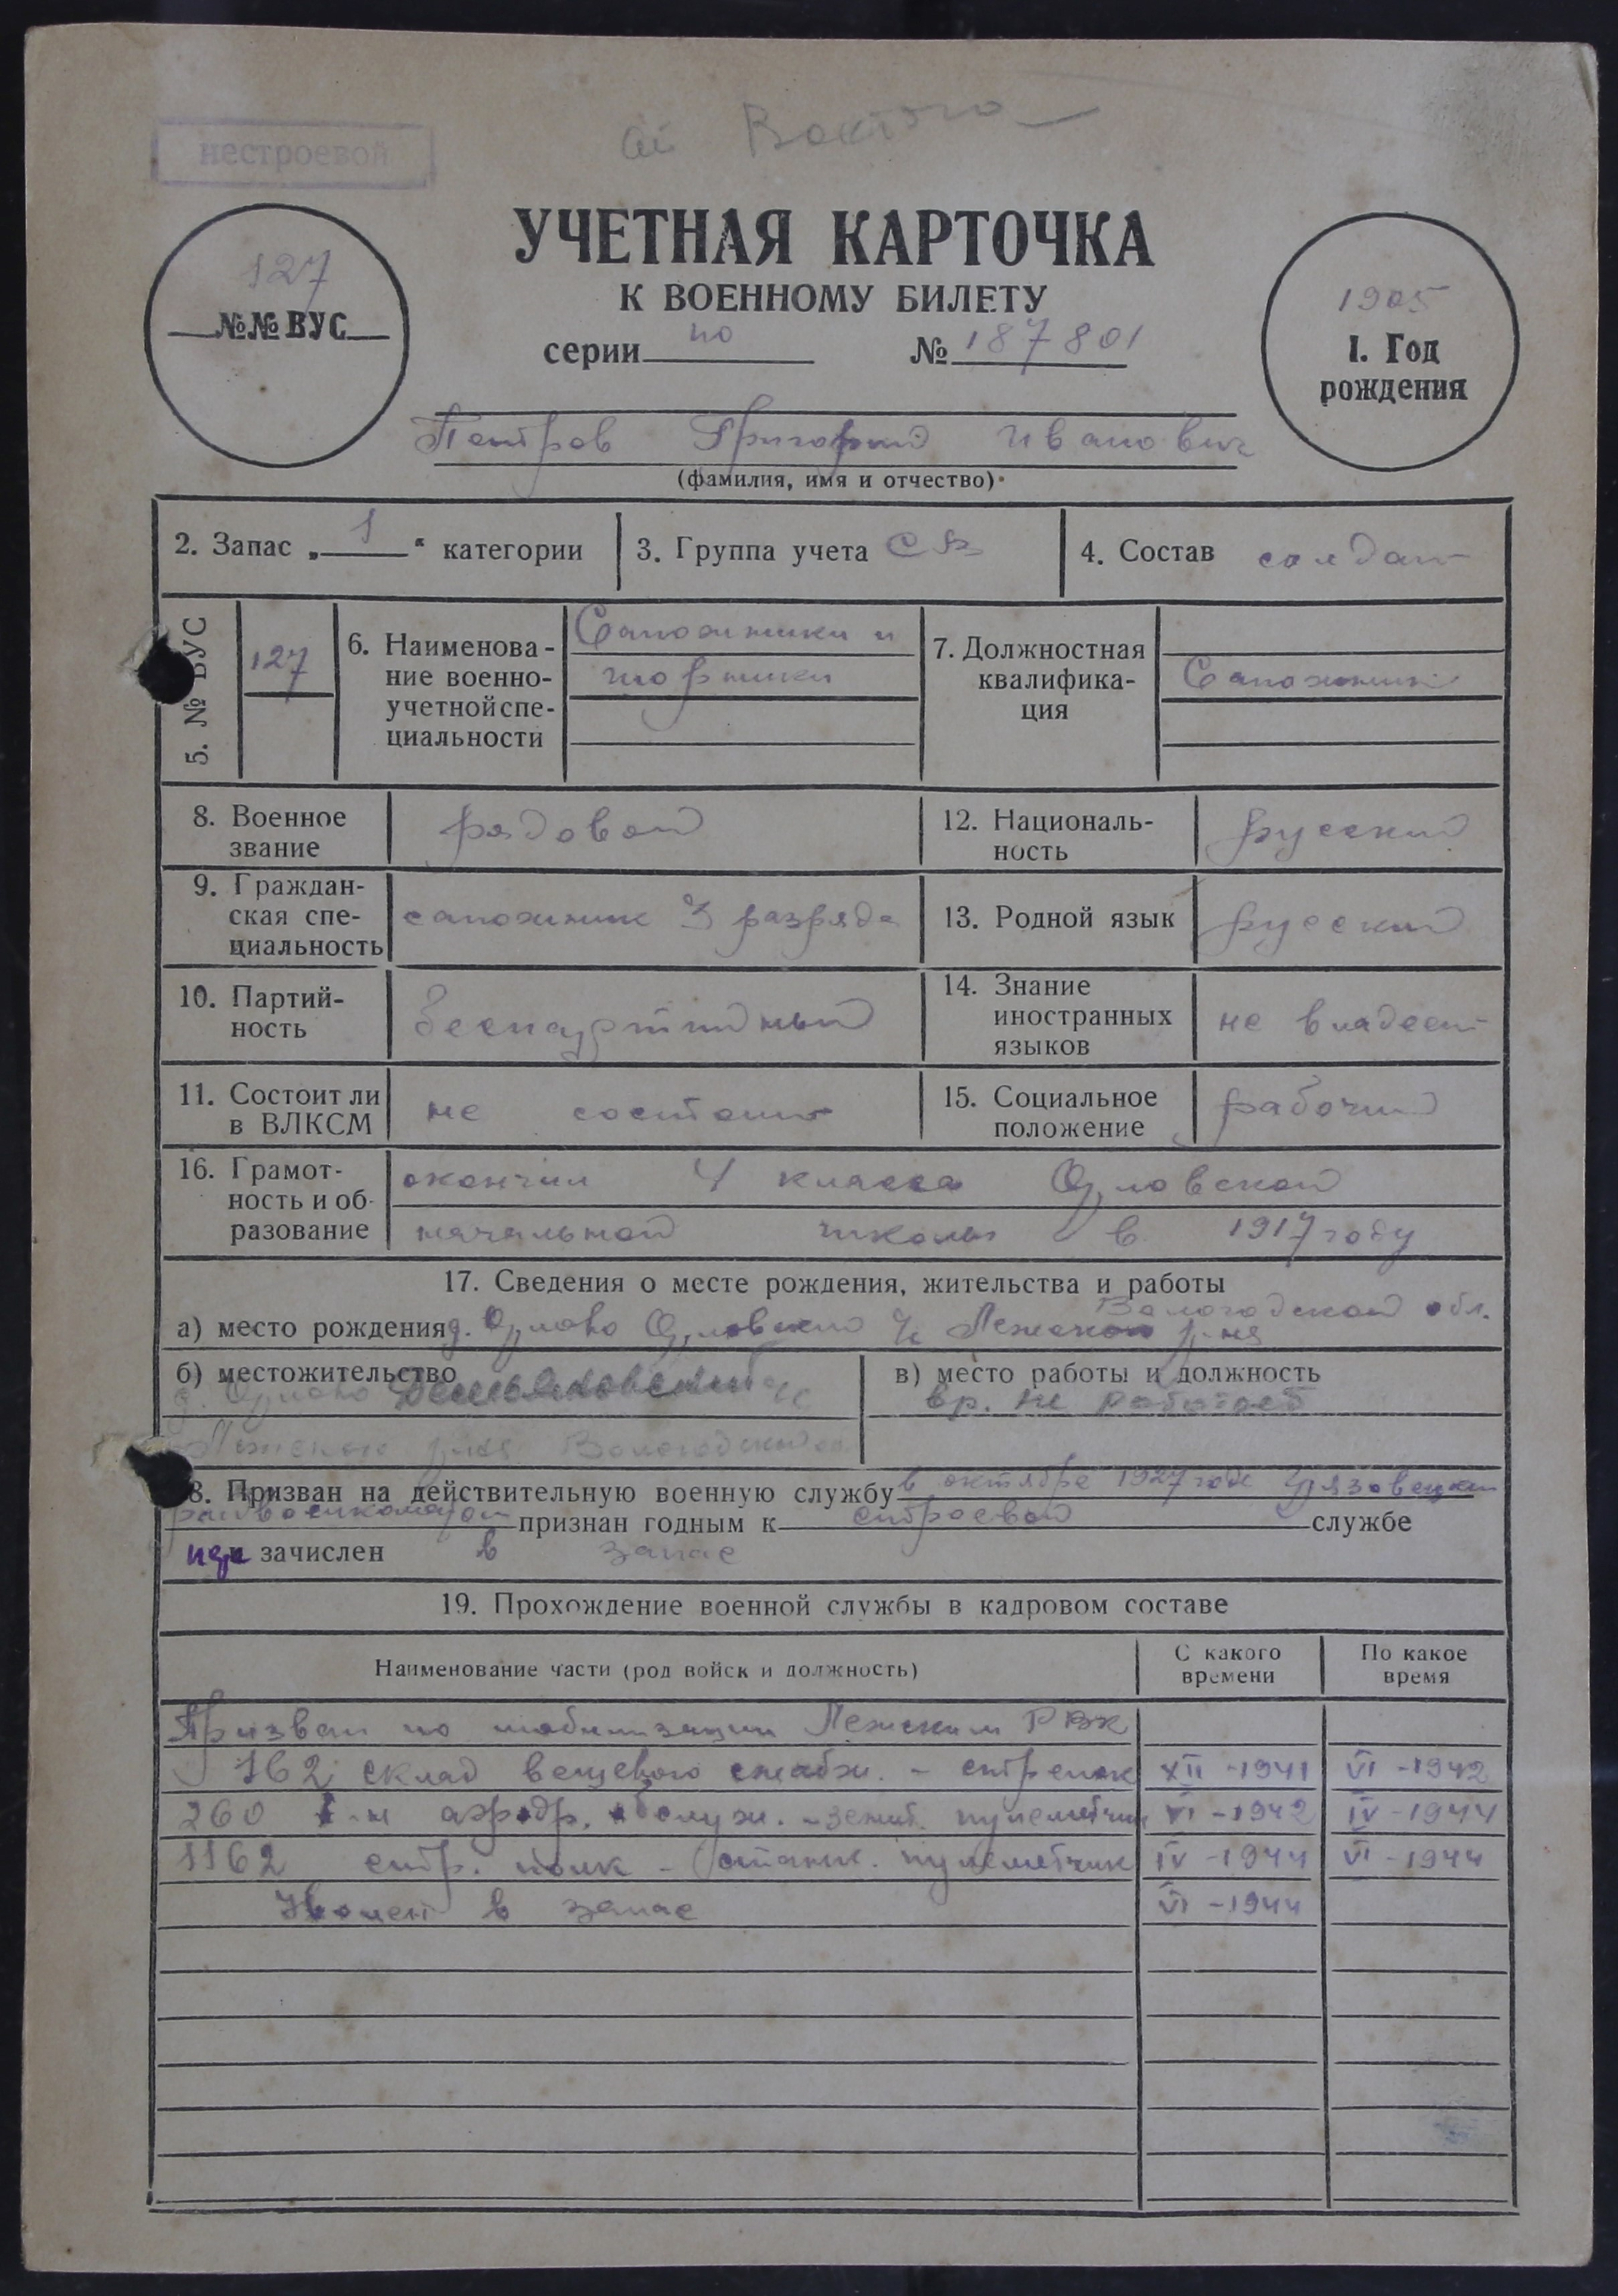 нестроевой
ст Вохтога
УЧЕТНАЯ КАРТОЧКА
К ВОЕННОМУ БИЛЕТУ
127
№№ ВУС
серии по № 187801
1905
I. Год
рождения
Петров Григорий Иванович
(фамилия, имя и отчество)
2. Запас „1“ категории
3. Группа учета СА
4. Состав солдат
5. № ВУС 127
6. Наименова-
ние военно-
учетной спе-
циальности
Сапожники и
шорники
7. Должностная
квалифика-
ция
Сапожник
8. Военное
звание
рядовой
12. Националь-
ность
русский
9. Граждан-
ская спе-
циальность
сапожник 3 разряда
13. Родной язык русский
10. Партий-
ность
беспартийный
14. Знание
иностранных
языков
не владеет
11. Состоит ли
в ВЛКСМ
не состоит
15. Социальное
положение
рабочий
16. Грамот-
ность и об-
разование
окончил 4 класса Орловской
начальной школы в 1917 году
17. Сведения о месте рождения, жительства и работы
Вологодской обл.
а) место рождения д. Орлово Орловского с/с Лежского р-на
б) местожительство
д. Орлово Демьяновский с/с
Лежского р-на Вологодской
в) место работы и должность
вр. не работает
18. Призван на действительную военную службу в октябре 1927 года Грязовецким
райвоенкоматом признан годным к строевой службе
и зачислен в запас
19. Прохождение военной службы в кадровом составе
Наименование части (род войск и должность)
С какого
времени
По какое
время
Призван по мобилизации Лежским РВК
162 склад вещевого снабж. - стрелок XII-1941 VI-1942
260 б-н аэродр. обслуж. - зенит. пулеметчик VI-1942 IV-1944
1162 стр. полк - станк. пулеметчик IV-1944 VI-1944
Уволен в запас VI-1944